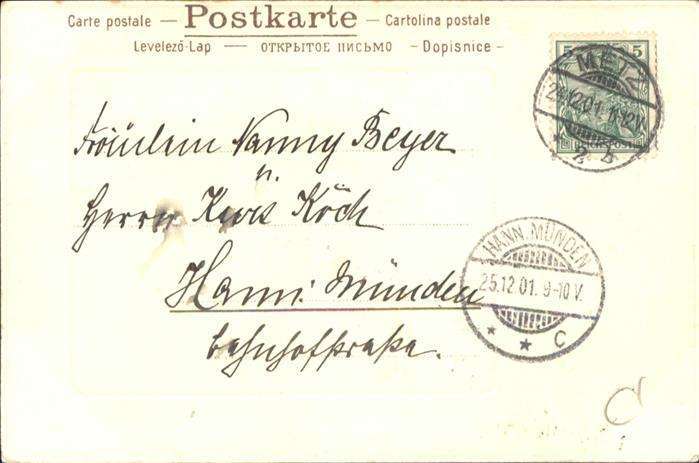 Carte postale – Postkarte – Cartolina postale
Levelező-Lap — ОТКРЫТОЕ ПИСЬМО – Dopisnice –
5 5
METZ
24.12.01. 11-12V.
2 b
Fräulein Nanny Beyer
u.
Herrn Kurt Köch
Hann: Münden
Bahnhofstraße.
HANN. MÜNDEN
25.12.01. 9-10 V.
* * C